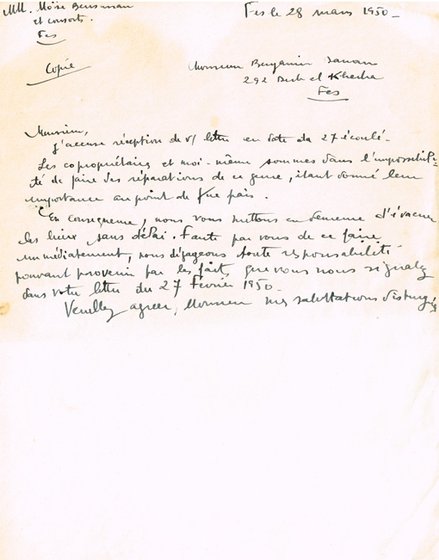 MM. Moïse Bensimon
et consorts
Fes
Fes le 28 mars 1950 -
Copie
Monsieur Benjamin
292 Derb el
Fes
Monsieur,
J'accuse réception de v/ lettre en date du 27 écoulé.
Les copropriétaires et moi-même sommes dans l'impossibili-
té de faire des réparations de ce genre, étant donné leur
importance au point de vue prix.
En conséquence, nous vous mettons en demeure d'évacuer
les lieux sans délai. Faute par vous de ce faire
immédiatement, nous dégageons toute responsabilité
pouvant provenir par les faits que vous nous signalez
dans votre lettre du 27 Février 1950.
Veuillez agréer, Monsieur mes salutations distinguées